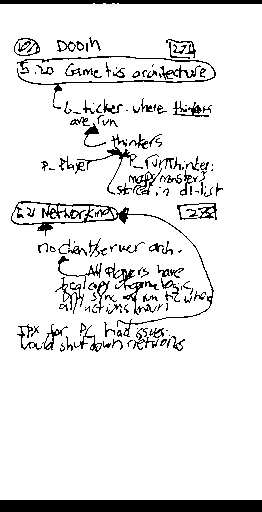 Doom
5.20 Game tics architecture
G_ticker. where thinkers
are run
thinkers
P_Player
P_runThinker:
map/monsters
stored in dl-list
5.21 Networking
no client/server arch.
All players have
local copy of game logic,
only sync and run tic when
all actions known
IPX for PC had issues.
Would shut down networks